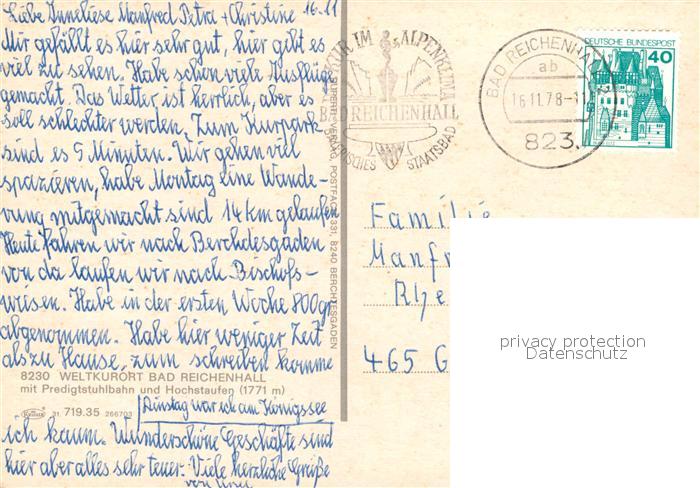 16.11
Liebe Anneliese Manfred Petra + Christine
Mir gefällt es hier sehr gut, hier gibt es
viel zu sehen. Habe schon viele Ausflüge
gemacht. Das Wetter ist herrlich, aber es
soll schlechter werden. Zum Kurpark
sind es 5 Minuten. Wir gehen viel
spazieren, habe Montag eine Wande-
rung mitgemacht sind 14 km gelaufen
Heute fahren wir nach Berchdesgaden
von da laufen wir nach Bischofs-
wiesen. Habe in der ersten Woche 800gr
abgenommen. Habe hier weniger Zeit
als zu Hause, zum schreiben komme
8230 WELTKURORT BAD REICHENHALL
mit Predigtstuhlbahn und Hochstaufen (1771 m)
31 719.35 266703
Dinstag war ich am Königssee
ich kaum. Wunderschöne Geschäfte sind
hier aber alles sehr teuer. Viele herzliche Grüße
von
VERLAG, POSTFACH 331, 8240 BERCHTESGADEN
KUR IM ALPENKLIMA
BAD REICHENHALL
BAYERISCHES STAATSBAD
BAD REICHENHALL
ab
16.11.78
823
DEUTSCHE BUNDESPOST
40
Familie
Manf
Rhe
465 G
privacy protection
Datenschutz